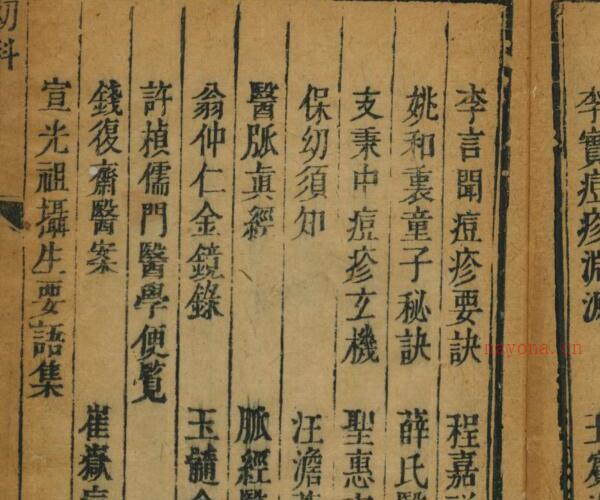 李實痘疹淵源
李言聞痘疹要訣
程嘉
姚和裏童子秘訣
薛氏醫
支秉中痘疹玄機
聖惠
保幼須知
汪澹
醫脈真經
脈經
翁仲仁金鏡錄
玉髓
許楨儒門醫學便覧
錢復齋醫案
崔嶽
宣光祖攝生要語集
幼科
nayona.cn